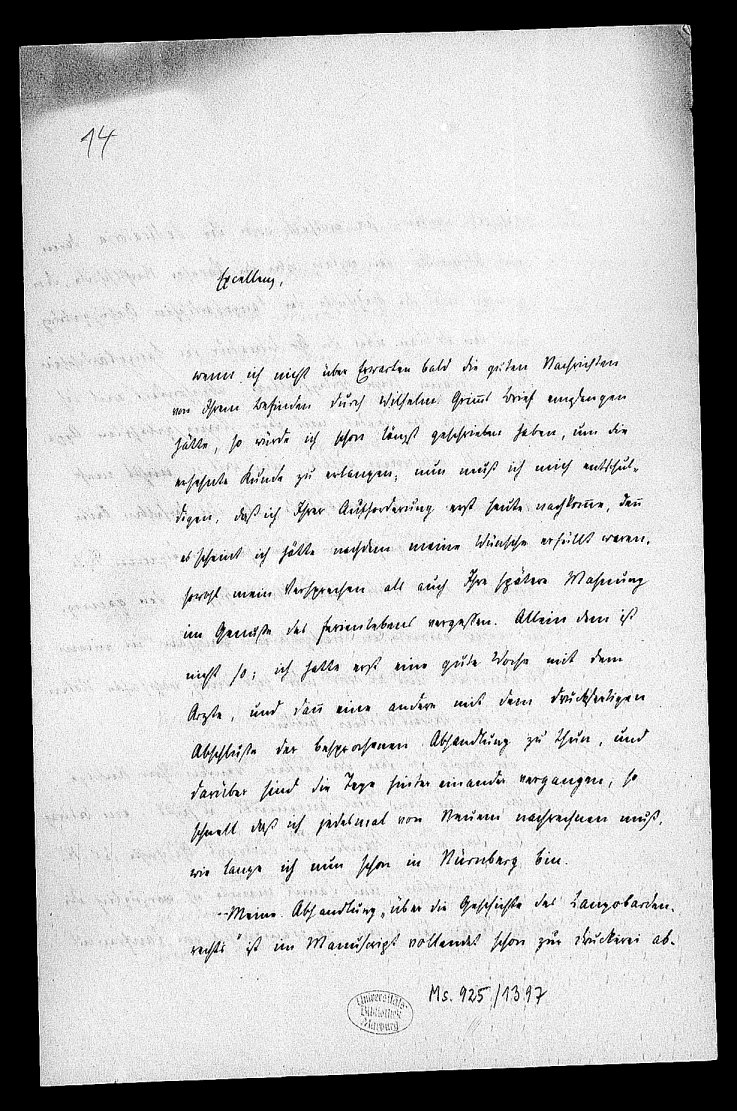 14
Excellenz,
wenn ich nicht über Erwarten bald die guten Nachrichten
von Ihrem Befinden durch Wilhelm Grimms Brief empfangen
hätte, so würde ich schon längst geschrieben haben, um die
ersehnte Kunde zu erlangen; nun muß ich mich entschul-
digen, daß ich Ihrer Aufforderung erst heute nachkomme, den̄
es scheint ich hätte nachdem meine Wünsche erfüllt waren,
sowohl mein Versprechen als auch Ihre spätere Mahnung
im Genuße des Ferienlebens vergeßen. Allein dem ist
nicht so; ich hatte erst eine gute Woche mit dem
Arzte, und dan̄ eine andere mit dem druckfertigen
Abschluße der besprochenen Abhandlung zu thun, und
darüber sind die Tage hinter einander vergangen, so
schnell daß ich jedesmal von Neuem nachrechnen muß,
wie lange ich nun schon in Nürnberg bin.
Meine Abhandlung „über die Geschichte des Langobarden-
rechts" ist im Manuscript vollendet schon zur Druckerei ab-
Ms. 925/1397
Universitäts-
Bibliothek
Marburg